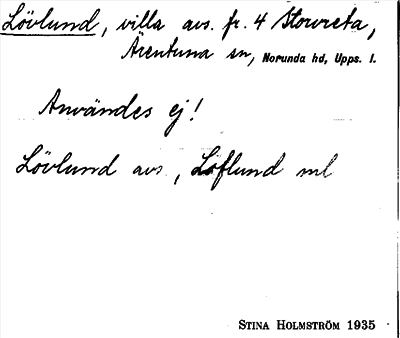 Lövlund, villa avs. fr. 4 Storvreta,
Ärentuna sn, Norunda hd, Upps. l.
Användes ej!
Lövlund avs., Löflund ml
STINA HOLMSTRÖM 1935